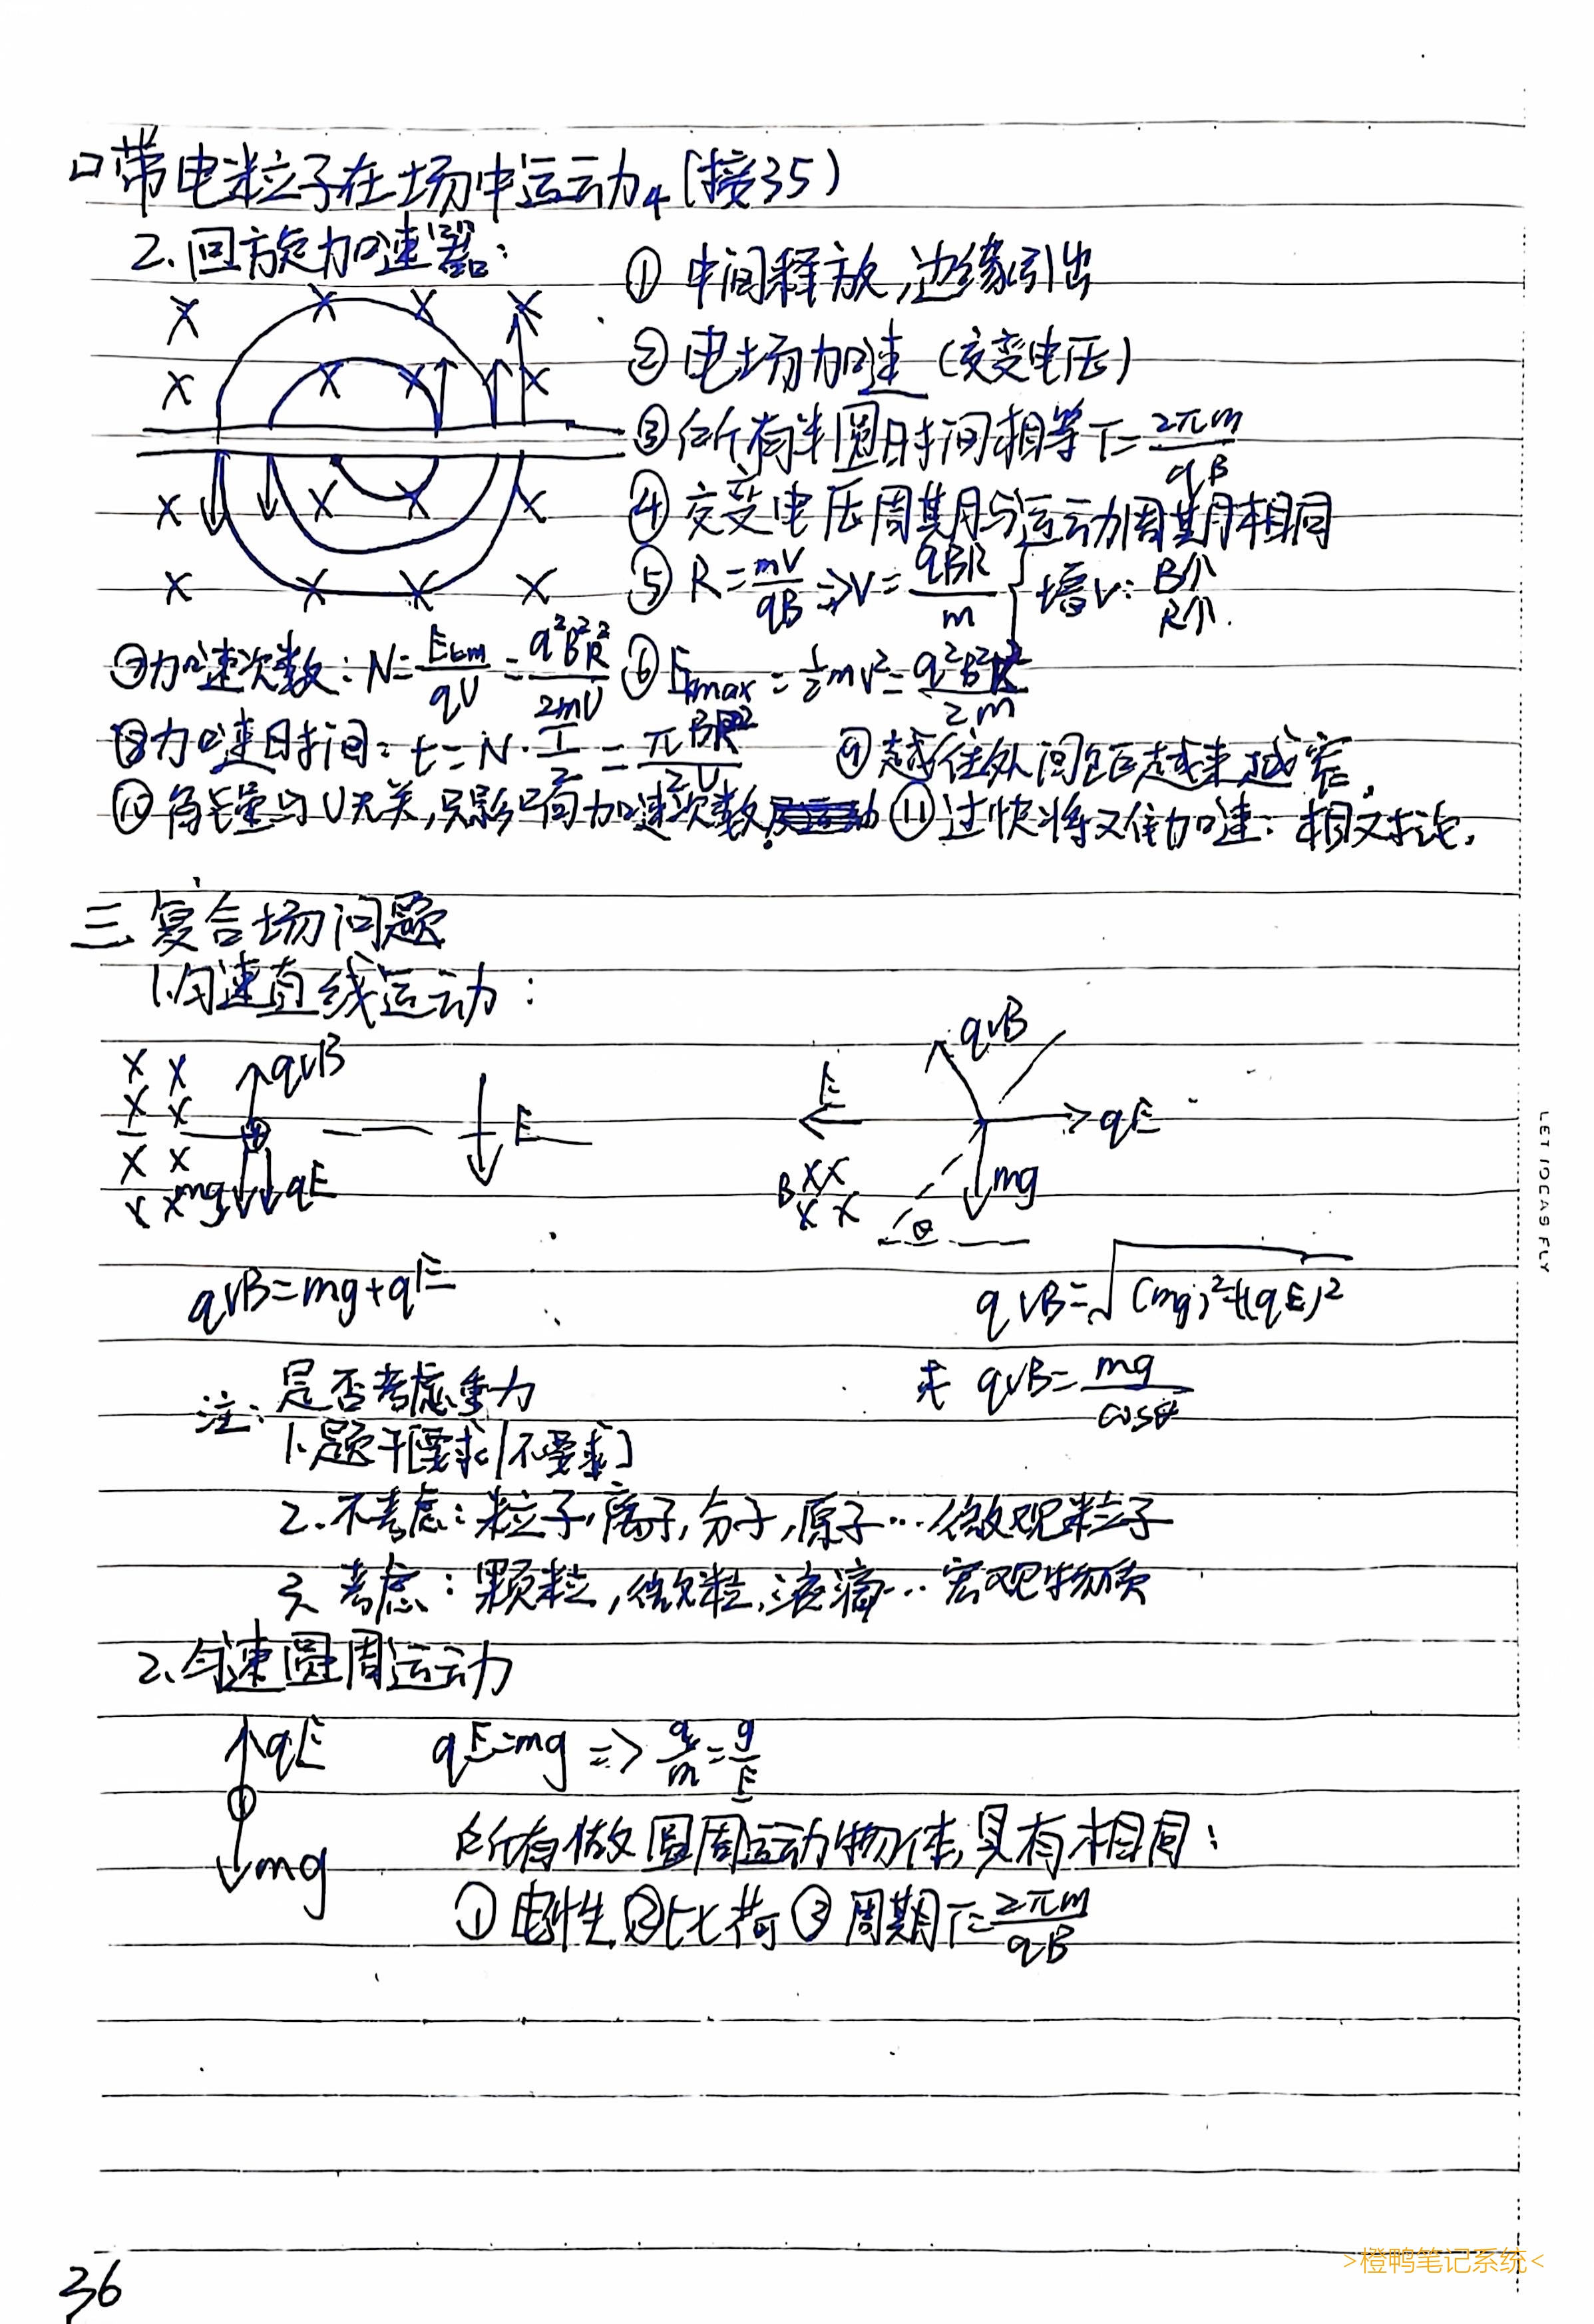 口带电粒子在场中运动4(接35)
2.回旋加速器:
① 中间释放,边缘引出
② 电场加速(交变电压)
③ 所有半圆时间相等 T=2πm/qB
④ 交变电压周期与运动周期相同
⑤ R=mv/qB ⇒ V=qBR/m } 增v: B↑ R↑.
⑦加速次数: N=Ekm/qU=q²B²R²/2mU ⑥ Ekmax=½mv²=q²B²R²/2m
⑧加速时间: t=N·T/2=πBR²/2U ⑨越往外间距越来越密.
⑩ 能量与U无关,只影响加速次数. ⑪过快将不能加速: 相对论.
三.复合场问题
1.匀速直线运动:
x x qvB
x x
E
x x mg qE
x x
qvB
E qE
B xx xx mg
θ
qvB=mg+qE
qvB=√(mg)²+(qE)²
qvB=mg/cosθ
注: 是否考虑重力
1.题干[要求/不要求]
2.不考虑:粒子,离子,分子,原子…微观粒子
3.考虑:颗粒,微粒,液滴…宏观物质
2.匀速圆周运动
qE qE=mg => q/m=g/E
mg
所有做圆周运动物体,具有相同:
①电性 ②比荷 ③周期T=2πm/qB
36
LET IDEAS FLY
>橙鸭笔记系统<